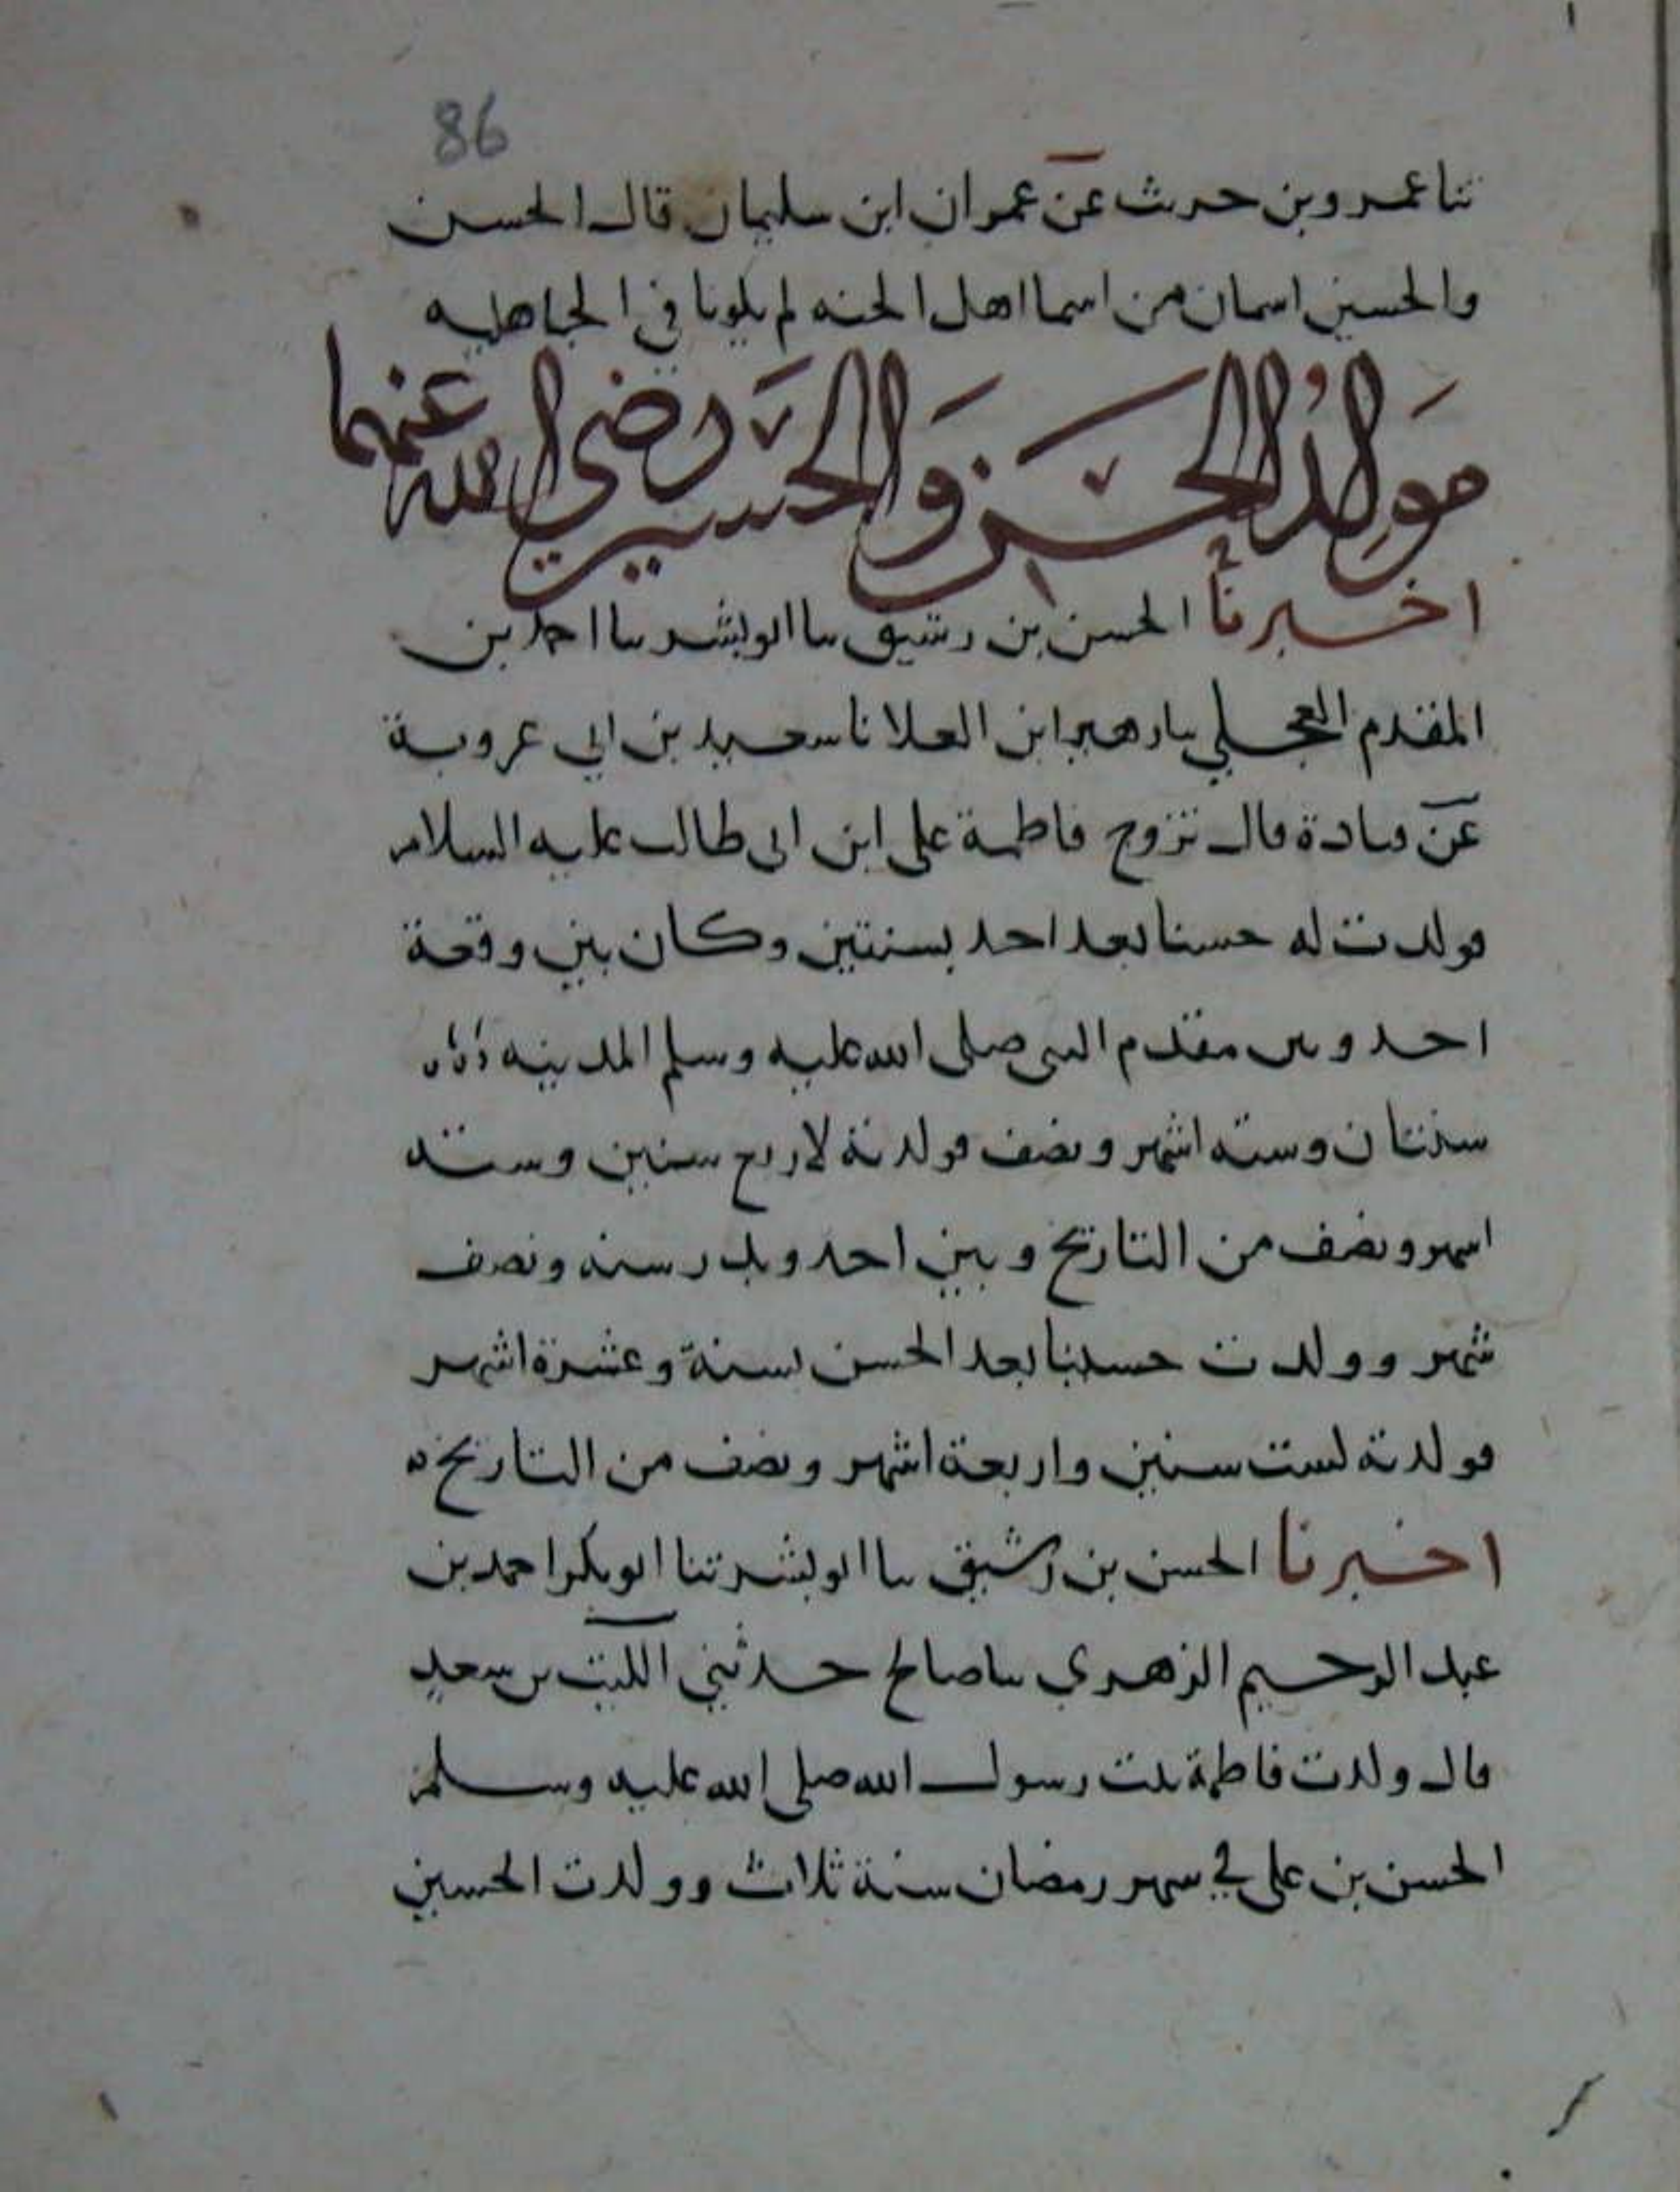 86
ثنا عمرو بن حرث عن عمران ابن سليمان قال الحسن
والحسين اسمان من اسما اهل الجنه لم يكونا في الجاهليه
مَولِدُ الحسَن وَالحسَين رَضي الله عنهما
اخبرنا الحسن بن رشيق نا ابو بشر نا احمد بن
المقدم العجلي نا زهير ابن العلا نا سعيد بن ابي عروبة
عن قتادة قال تزوج فاطمة على ابن ابى طالب عليه السلام
فولدت له حسنا بعد احد بسنتين وكان بين وقعة
احد وبين مقدم النبى صلى الله عليه وسلم المدينه
سنتان وسته اشهر ونصف فولدته لاربع سنين وسته
اشهر ونصف من التاريخ وبين احد وبدر سنه ونصف
شهر وولدت حسينا بعد الحسن بسنة وعشرة اشهر
فولدته لست سنين واربعة اشهر ونصف من التاريخ ه
اخبرنا الحسن بن رشيق نا ابو بشر ثنا ابو بكر احمد بن
عبد الرحيم الزهري نا صالح حدثني الليث بن سعد
قال ولدت فاطمة بنت رسول الله صلى الله عليه وسلم
الحسن بن على في شهر رمضان سنة ثلاث وولدت الحسين